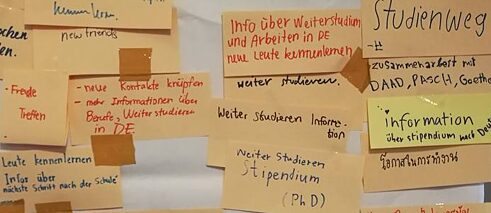 kennenlernen.
new friends
- Freude
Treffen
- neue Kontakte knüpfen
- mehr Informationen über
Berufe, Weiterstudieren
in DE
Leute kennenlernen
Infos über
nächste Schritt nach der Schule
Info über Weiterstudium
und Arbeiten in DE
neue Leute kennenlernen
weiter studieren.
Weiter Studieren Informa-
tion
Weiter Studieren
Stipendium
(PhD)
Studienweg
zusammenarbeit mit
DAAD, PASCH, Goethe
information
über stipendium nach Deu
โอกาสในการทำงาน